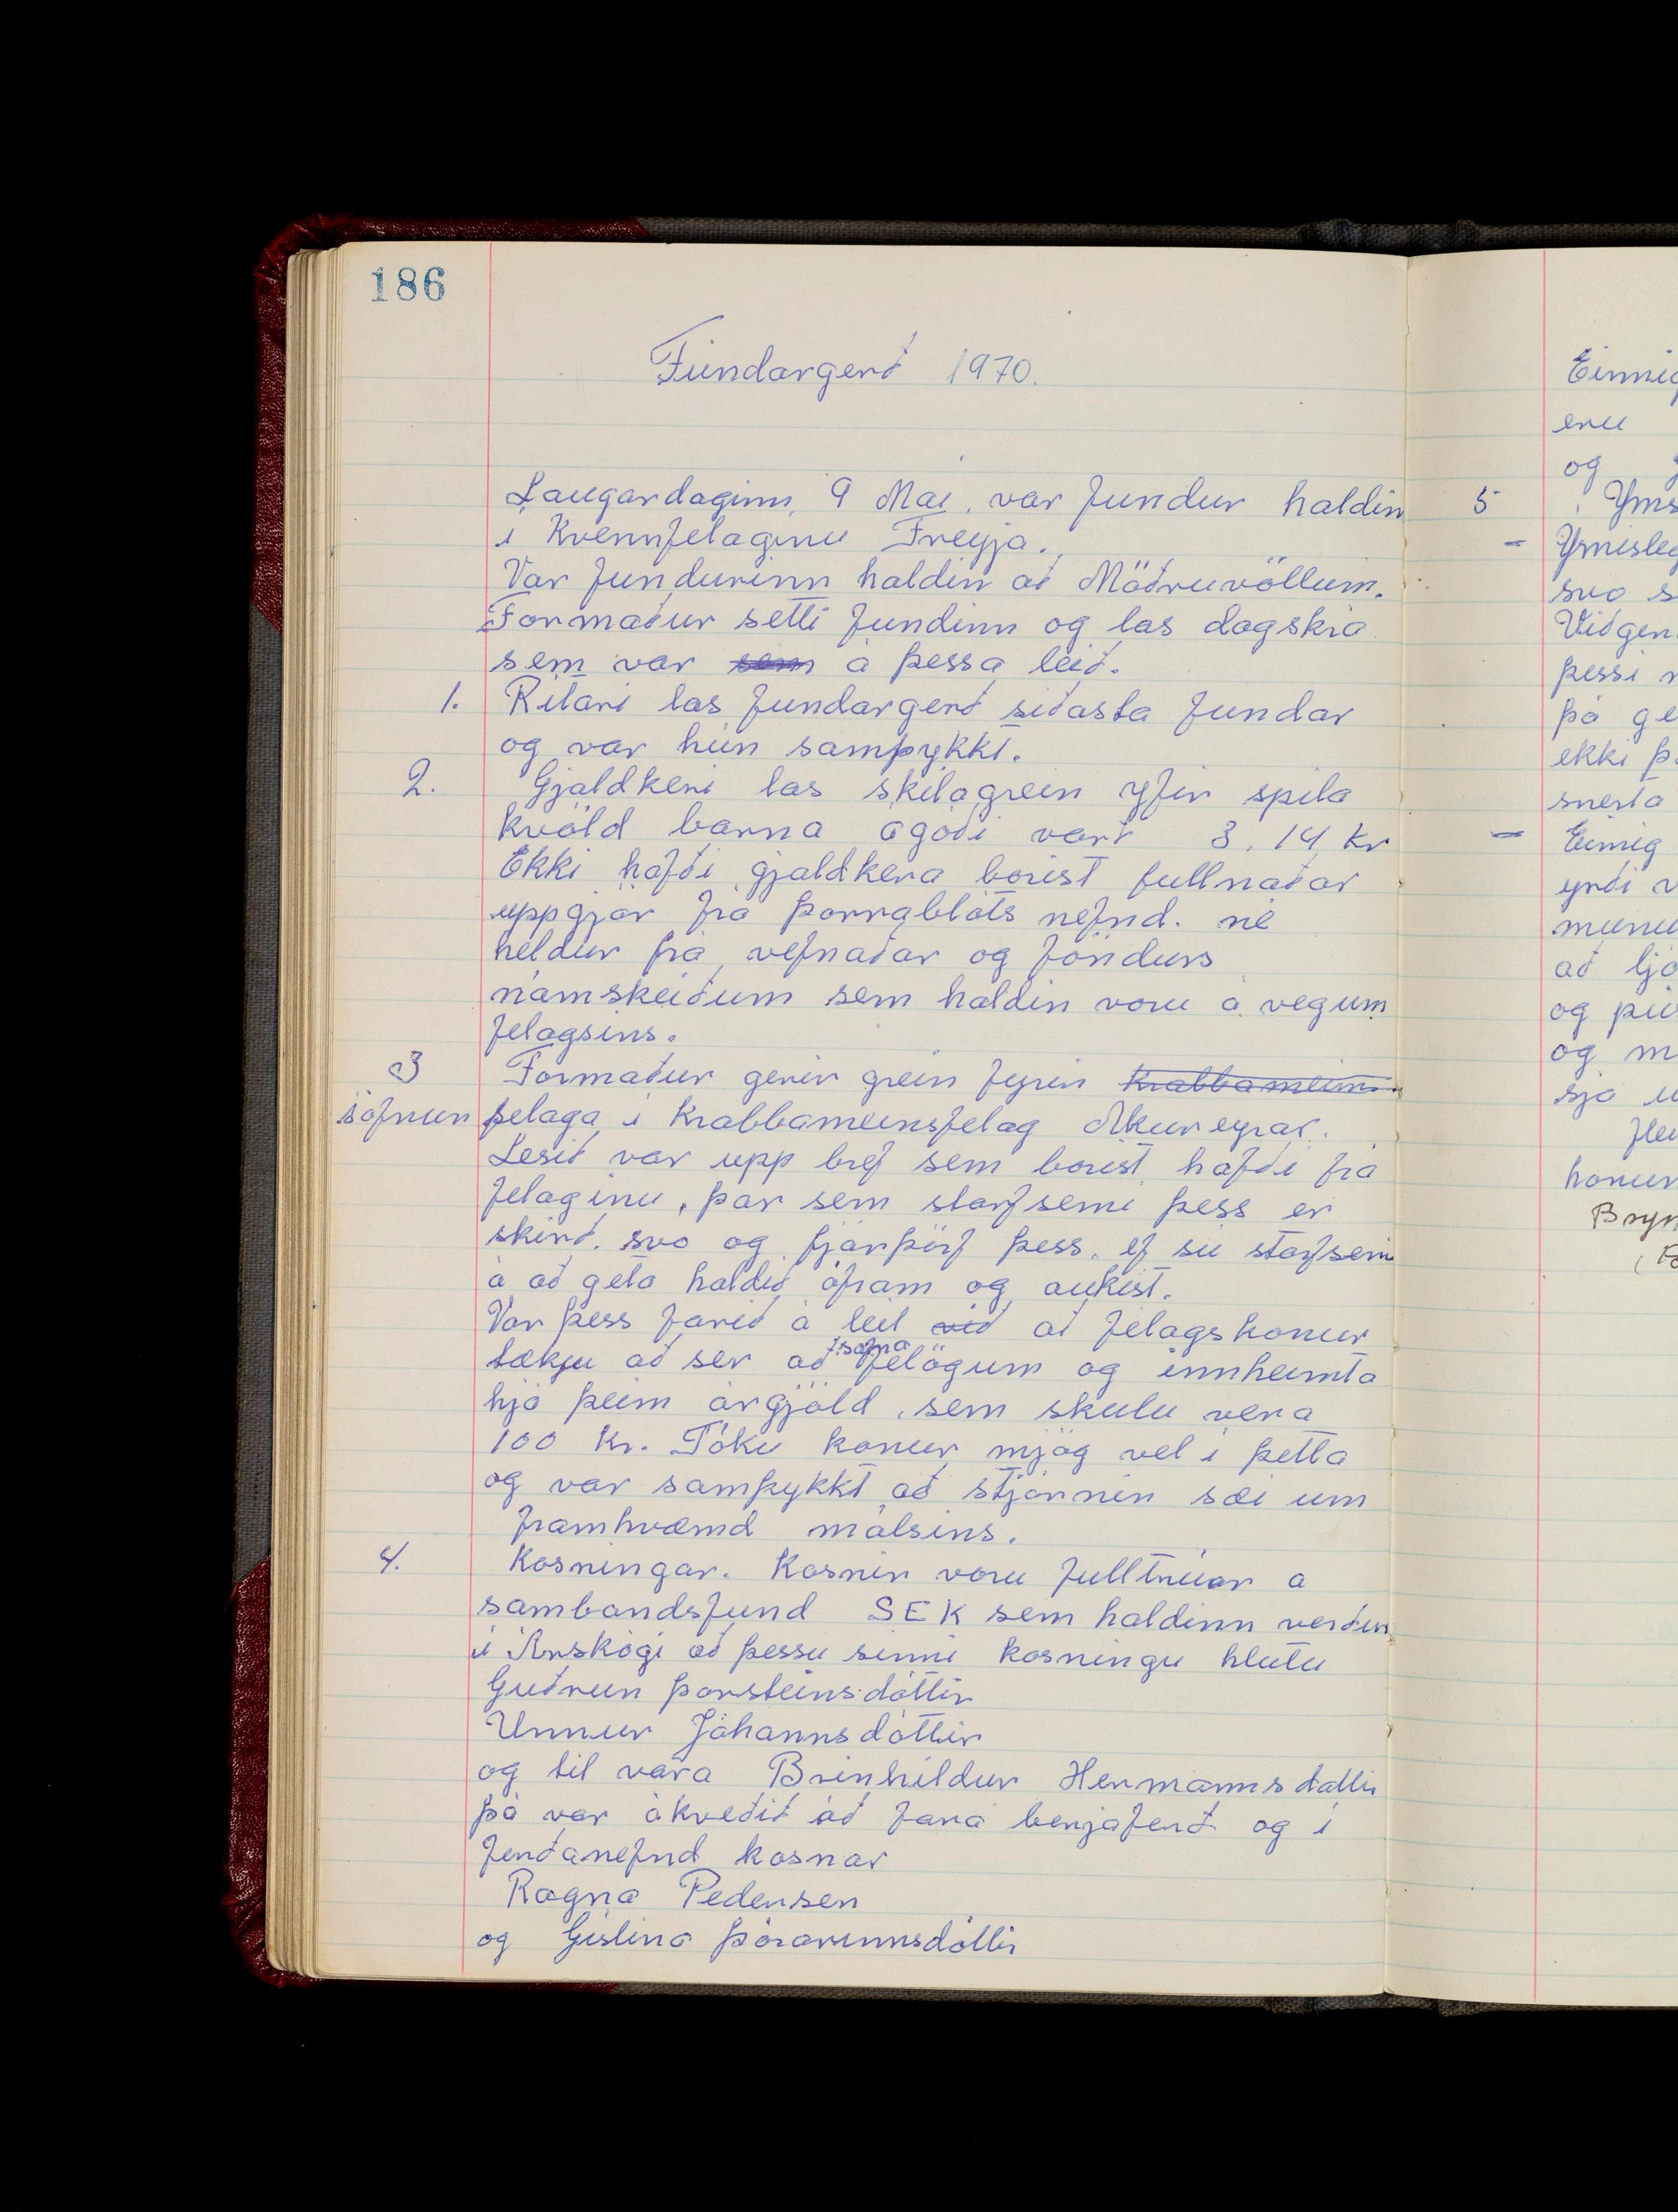 186
Fundargerð 1970.
Laugardaginn, 9 Mai. var fundur haldin
í Kvennfelaginu Freyja.
Var fundurinn haldin að Möðruvöllum.
Formaður setti fundinn og las dagskrá
sem var sem á þessa leið.
1. Ritari las fundargerð síðasta fundar
og var hún samþykkt.
2. Gjaldkeri las skilagrein yfir spila
kvöld barna ágoði varð 3.14 kr
Ekki hafði gjaldkera borist fullnaðar
uppgjör frá þorrablóts nefnd. né
heldur frá vefnaðar og föndurs
námskeiðum sem haldin voru á vegum
felagsins.
3 Formaður gerir grein fyrir Krabbameins
söfnun felaga í Krabbameinsfelag Akureyrar.
Lesið var upp bref sem borist hafði frá
felaginu, þar sem starfsemi þess er
skírð. svo og fjárþörf þess. ef sú starfsemi
á að geta haldið áfram og aukist.
Var þess farið á leit við að felagskonur
tækju að ser að safna felögum og innheimta
hjá þeim árgjöld, sem skulu vera
100 kr. Tóku konur mjög vel í þetta
og var samþykkt að stjórnin sæi um
framhvæmd málsins.
4. Kosningar. Kosnir voru fulltrúar á
sambandsfund SEK sem haldinn verður
í Árskógi að þessu sinni kosningu hlutu
Guðrún Þorsteinsdóttir
Unnur Jóhannsdóttir
og til vara Brinhildur Hermannsdottir
Þá var ákveðið að fara berjaferð og í
ferðanefnd kosnar
Ragna Pedersen
og Gíslína Þórarinnsdóttir
eru
og
5
þessi
ekki
snerta
Einnig
að
og
og